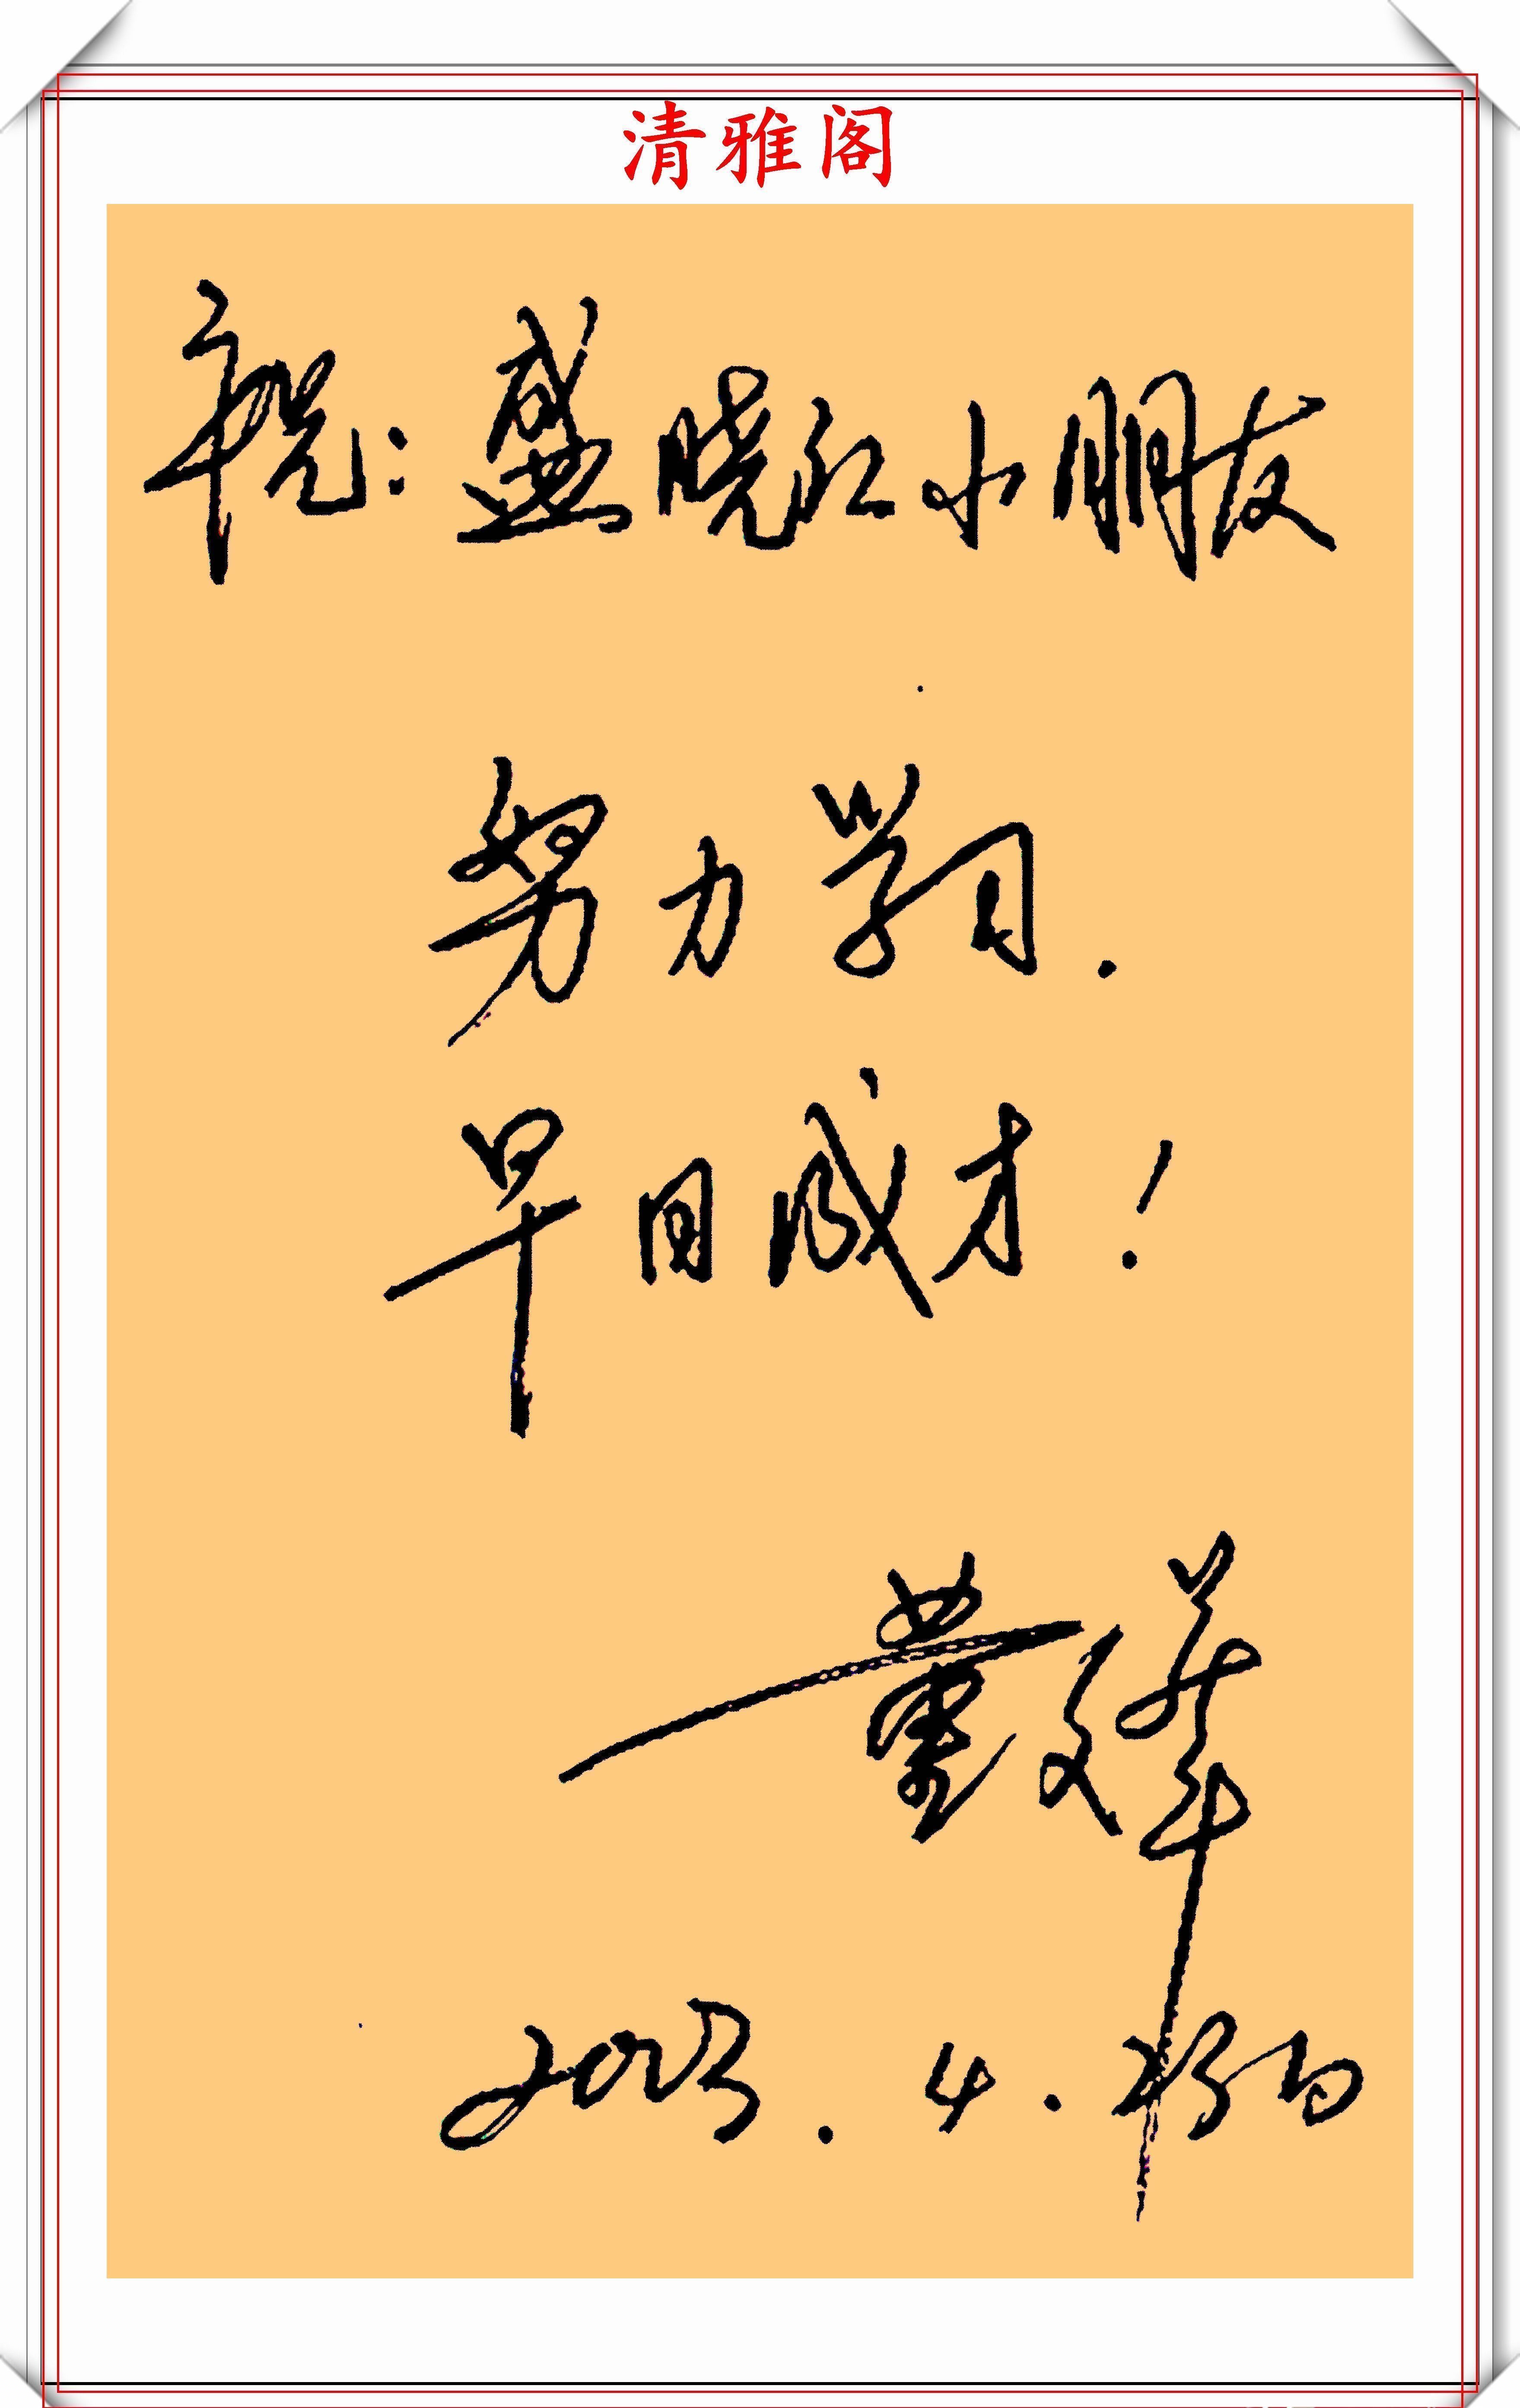 清雅阁
祝：盛晓江小朋友
努力学习．
早日成才！
戴文华
2003．4．